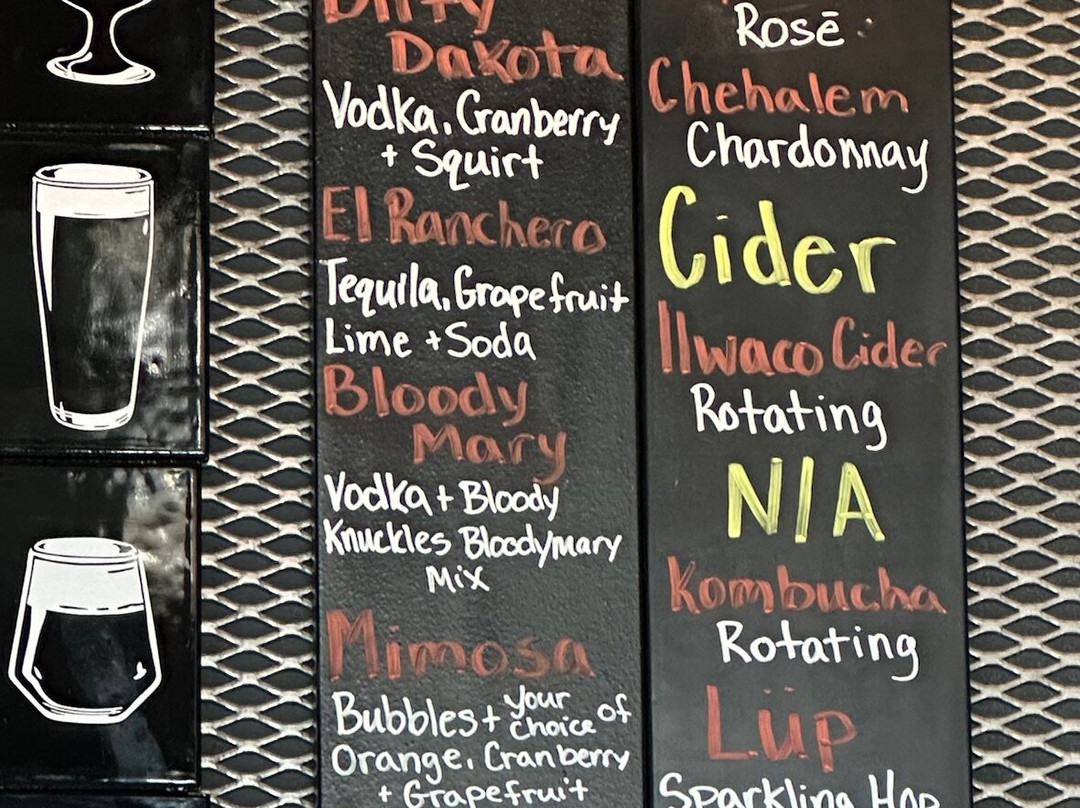 Dirty
Dakota
Vodka, Cranberry
+ Squirt
El Ranchero
Tequila, Grapefruit
Lime + Soda
Bloody
Mary
Vodka + Bloody
Knuckles Bloodymary
Mix
Mimosa
Bubbles + your choice of
Orange, Cranberry
+ Grapefruit
Rosē
Chehalem
Chardonnay
Cider
Ilwaco Cider
Rotating
N/A
Kombucha
Rotating
Lüp
Sparkling Hop